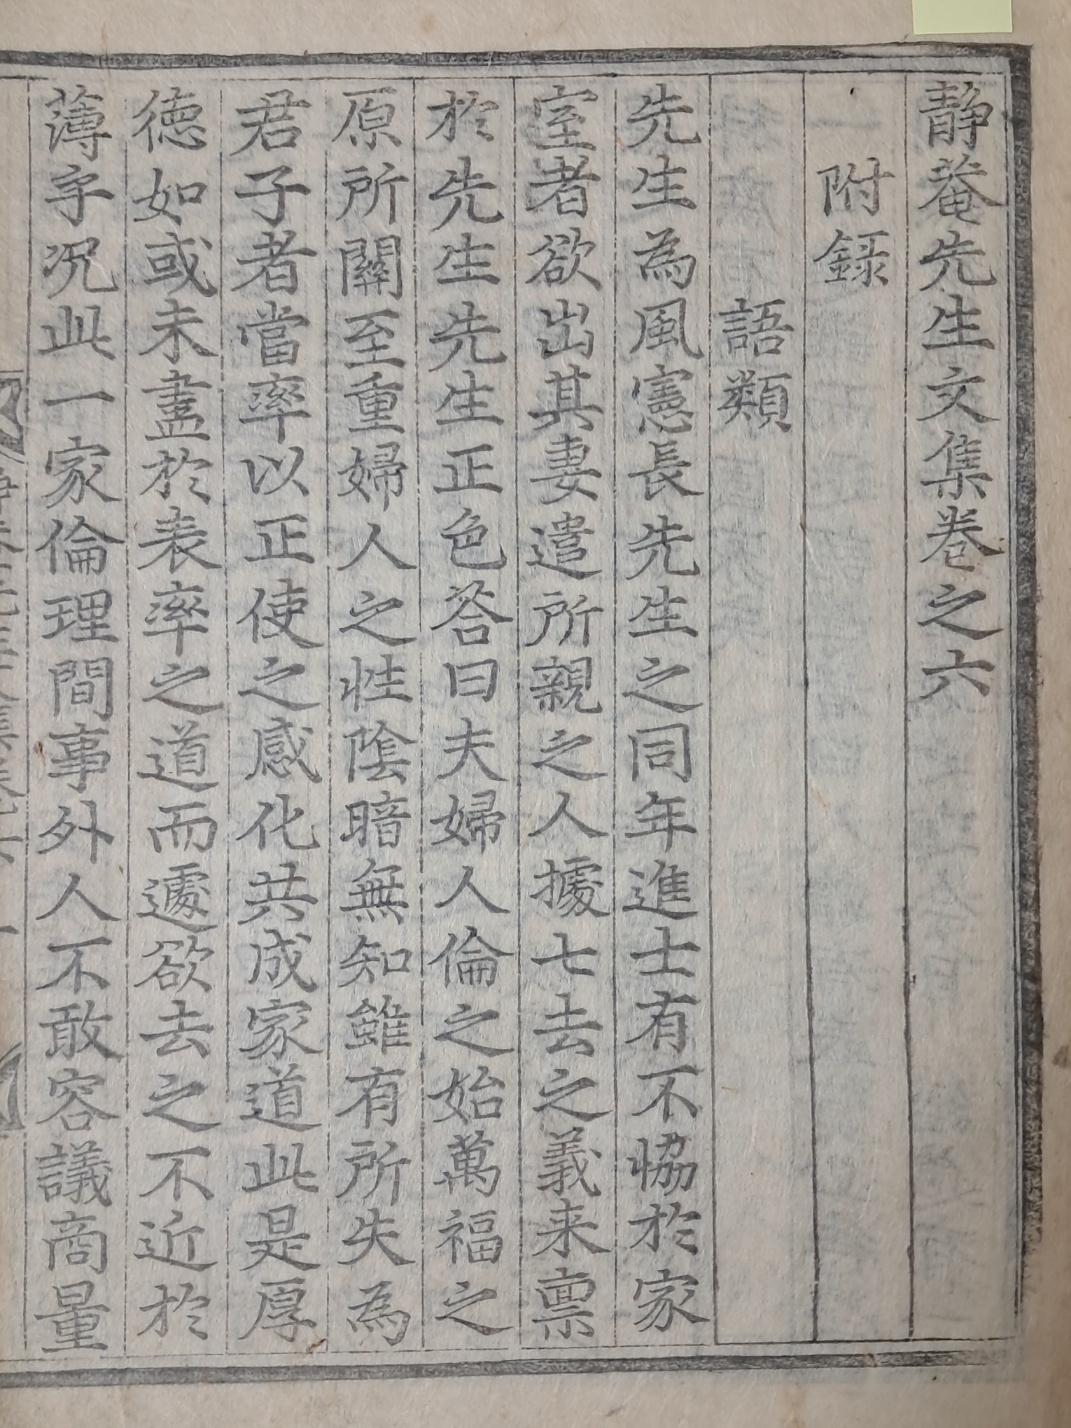 靜菴先生文集卷之六
附錄
語類
先生為風憲長先生之同年進士有不恊於家
室者欲出其妻遣所親之人據七去之義来禀
於先生先生正色答曰夫婦人倫之始萬福之
原所關至重婦人之性陰暗無知雖有所失為
君子者當率以正使之感化共成家道此是厚
德如或未盡於表率之道而遽欲去之不近於
薄乎况此一家倫理間事外人不敢容議商量